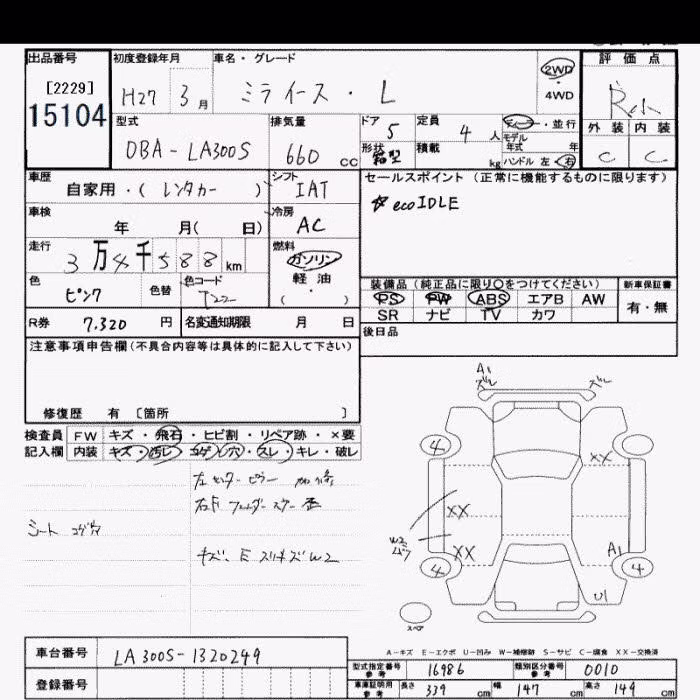 出品番号 初度登録年月 車名・グレード 評価点
[2229] H27 3月 ミライース・L 2WD R小
15104 ・4WD
型式 排気量 ドア 定員 ディーラー・並行 外装 内装
DBA-LA300S 660 cc 5 4 人 モデル年式 年 C C
形状 箱型 積載 kg ハンドル 左・右
車歴 シフト セールスポイント(正常に機能するものに限ります)
自家用・(レンタカー) IAT ☆ecoIDLE
車検 年 月( 日) 冷房 AC
走行 3万4千588km 燃料 ガソリン
軽油
・( )
色 ピンク 色替 色コード T22 装備品(純正品に限り○をつけてください) 新車保証書
PS PW ABS エアB AW 有・無
R券 7,320 円 名変通知期限 月 日 SR ナビ TV カワ
注意事項申告欄(不具合内容等は具体的に記入して下さい) 後日品
修復歴 有 〔箇所 〕
検査員 FW キズ・飛石・ヒビ割・リペア跡・×要
記入欄 内装 キズ・汚レ・コゲ・穴・スレ・キレ・破レ
左センターピラー
シート コゲ穴
キズ、E スリキズW2
A1
ズレ ズレ
4
XX
XX
W2
XX A1
4 4
U1
スペア
A-キズ E-エクボ U-凹み W-補修跡 S-サビ C-腐食 XX-交換済
車台番号 LA300S-1320249
型式指定番号 参考 16986 類別区分番号 参考 0010
登録番号
車庫証明用 参考 長さ 339 cm 幅 147 cm 高さ 149 cm